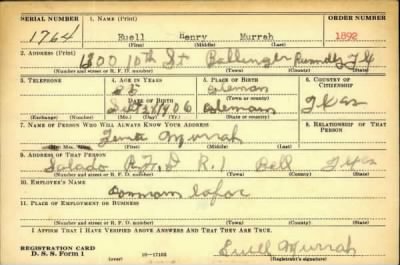 SERIAL NUMBER 1. NAME (Print) ORDER NUMBER
1764 Buell Henry Murrah 1892
(First) (Middle) (Last)
2. ADDRESS (Print)
1300 10th St Ballinger Runnels Tex
(Number and street or R. F. D. number) (Town) (County) (State)
3. TELEPHONE 4. AGE IN YEARS 5. PLACE OF BIRTH 6. COUNTRY OF CITIZENSHIP
Coleman
DATE OF BIRTH (Town or county)
1906 Coleman Texas
(Exchange) (Number) (Mo.) (Day) (Yr.) (State or country)
7. NAME OF PERSON WHO WILL ALWAYS KNOW YOUR ADDRESS 8. RELATIONSHIP OF THAT PERSON
Murrah
(Mr., Mrs., Miss) (First) (Middle) (Last)
9. ADDRESS OF THAT PERSON
Salado R.F.D R.1 Bell Texas
(Number and street or R. F. D. number) (Town) (County) (State)
10. EMPLOYER'S NAME
11. PLACE OF EMPLOYMENT OR BUSINESS
(Number and street or R. F. D. number) (Town) (County) (State)
I AFFIRM THAT I HAVE VERIFIED ABOVE ANSWERS AND THAT THEY ARE TRUE.
REGISTRATION CARD
D. S. S. Form 1 16—17105 Buell Murrah
(Registrant's signature)